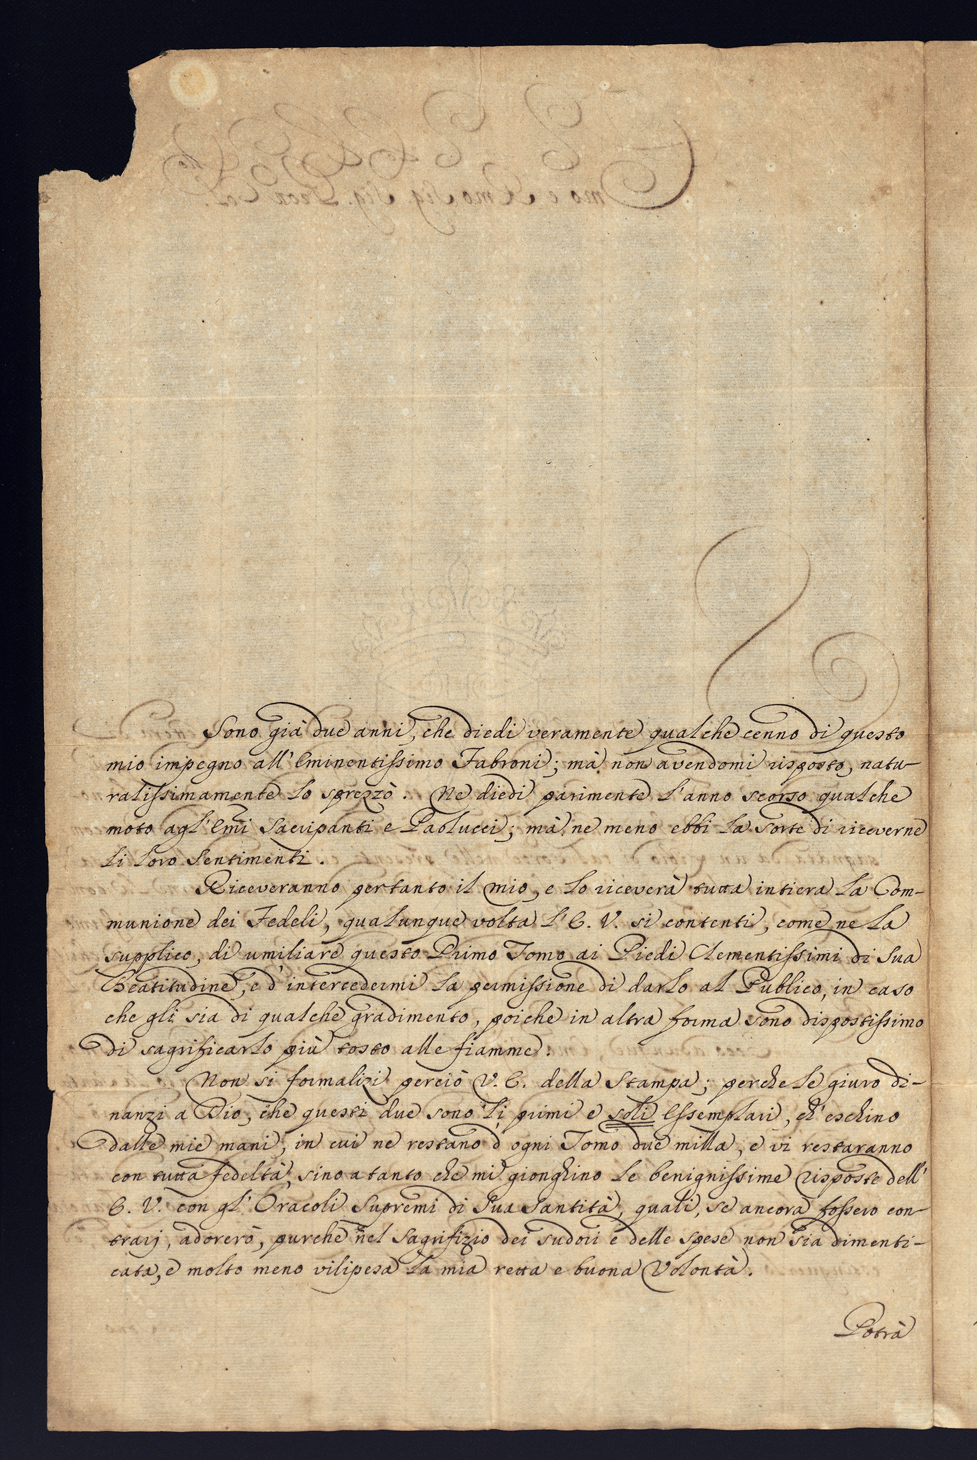 Sono già due anni, che diedi veramente qualche cenno di questo
mio impegno all'Eminentissimo Fabroni; mà non avendomi risposto, natu-
ralissimamente lo sprezzò. Ne diedi parimente l'anno scorso qualche
moto agl'Emi Sacripanti e Paolucci; mà ne meno ebbi la sorte di riceverne
li loro sentimenti.
Riceveranno pertanto il mio, e lo riceverà tutta intiera la Com-
munione dei Fedeli, qualunque volta l'E. V. si contenti, come ne la
supplico, di umiliare questo Primo Tomo ai Piedi Clementissimi di Sua
Beatitudine, e d'intercedermi la permissione di darlo al Publico, in caso
che gli sia di qualche gradimento, poiche in altra forma sono dispostissimo
di sagrificarlo più tosto alle fiamme.
Non si formalizi perciò V. E. della Stampa; perche le giuro di-
nanzi a Dio, che questi due sono li primi e soli Essemplari, ch'eschino
dalle mie mani, in cui ne restano d'ogni Tomo due milla, e vi restaranno
con tutta fedeltà, sino a tanto che mi gionghino le benignissime risposte dell'
E. V. con gl'Oracoli Supremi di Sua Santità, quali, se ancora fossero con-
trarj, adorerò, purche nel Sagrifizio dei sudori e delle spese non sia dimenti-
cata, e molto meno vilipesa la mia retta e buona Volontà.
Potrà